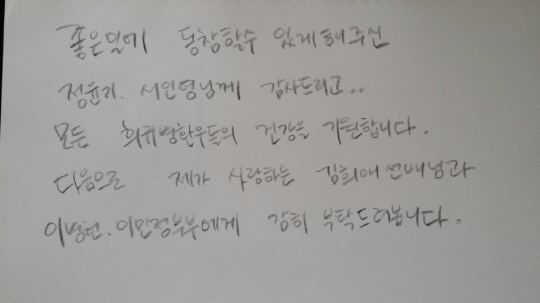 좋은일에 동참할수 있게해주신
정윤기. 서인영님께 감사드리고..
모든 희귀병환우들의 건강을 기원합니다.
다음으로 제가 사랑하는 김희애선배님과
이병헌.이민정부부에게 감히 부탁드려봅니다.